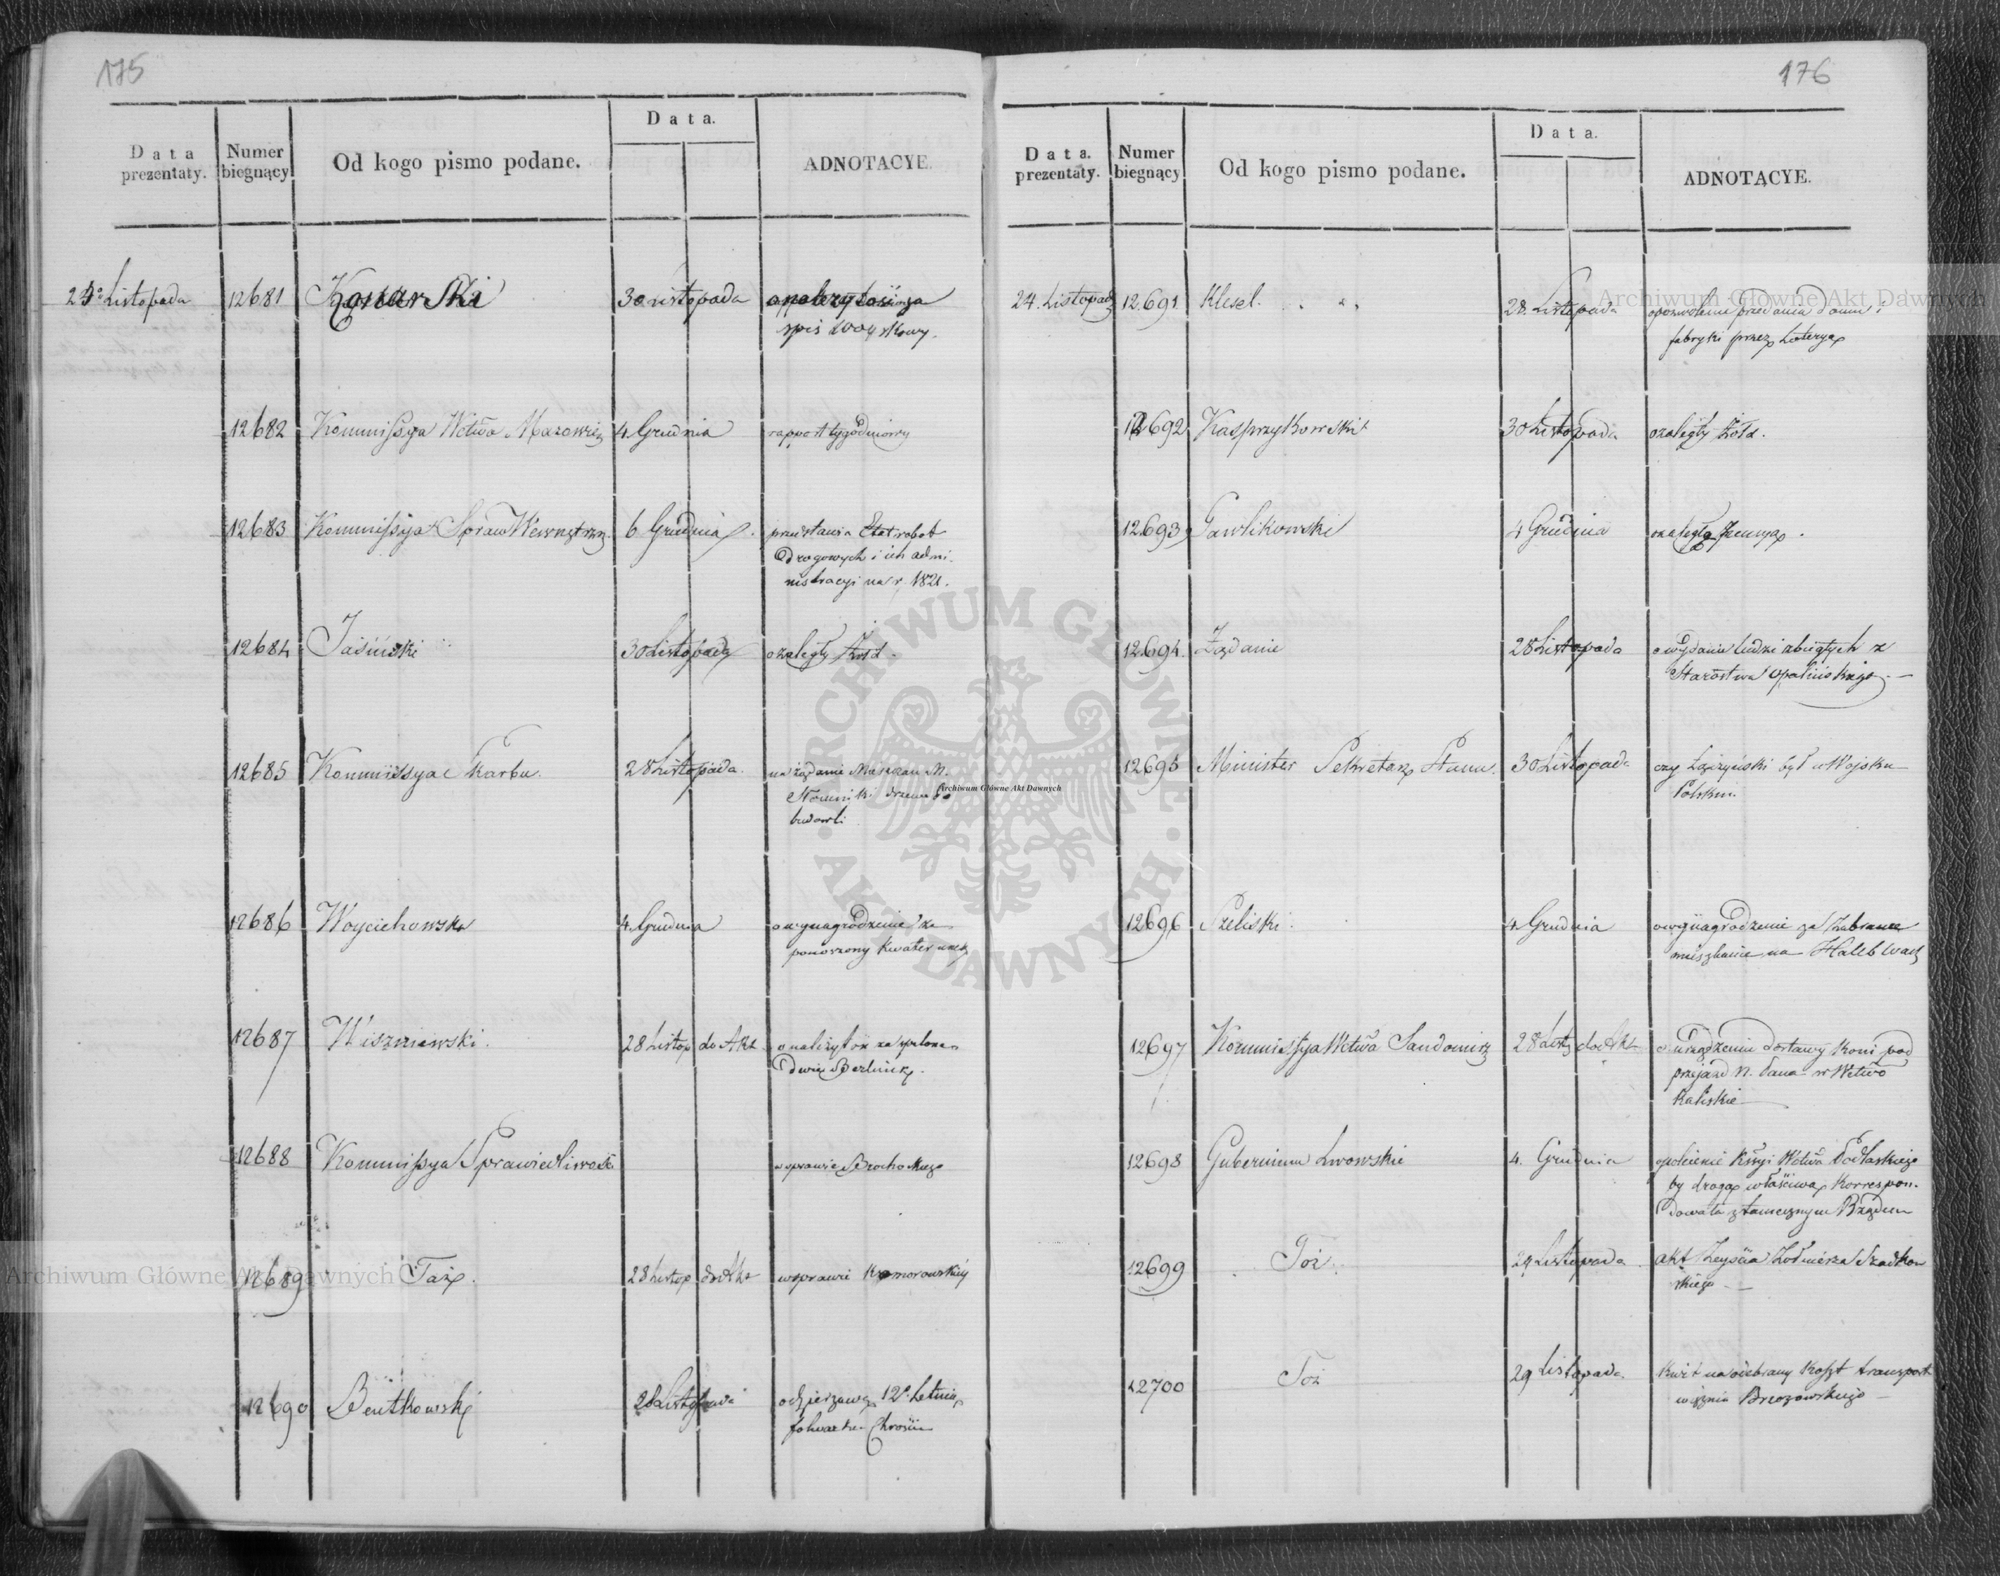 175
Data prezentaty.
Numer biegnący
Od kogo pismo podane.
Data.
ADNOTACYE.
24 Listopada 12681 Konarski 30 Listopada
spis woyskowy.
12682 Kommissya Wctwa Mazowiec 4. Grudnia rapport tygodniowy
12683 Kommissya Spraw Wewnętrzn. 6 Grudnia przedstawia Etat robot
drogowych i ich admi-
nistracyi na r. 1821.
12684 Jasiński 30 Listopada o zaległy żołd.
12685 Kommissya Skarbu. 28 Listopada. na żądanie Mieszcan M.
Słomniki drzewa do
budowli
12686 Woyciechowska 4. Grudnia o wynagrodzenie za
ponoszony kwaterunek
12687 Wiszniewski. 28 Listop do Akt. o należytość za spalone
dwie Berlinki.
12688 Kommissya Sprawiedliwości w sprawie Brochockiego
12689 Taż. 28 Listop do Akt w sprawie Komorowskiéy
12690 Bentkowski 28 Listopada o dzierzawę 12. Letnią
folwarku
176
Data. prezentaty.
Numer biegnący
Od kogo pismo podane.
Data.
ADNOTACYE.
24. Listopada 12691 Klesel. 28. Listopada o pozwolenie przedania domu i
fabryki przez Loteryą
12692 Kasprzykowski 30 Listopada o zaległy żołd.
12693 Pawlikowski 4 Grudnia o zaległą Pensyą.
12694. Żądanie 28 Listopada o wydanie ludzi zbiegłych z
Starostwa Opalińskiego.
12695 Minister Sekretarz Stanu. 30 Listopada czy był w Wojsku
Polskim.
12696 Szeliski. 4. Grudnia o wynagrodzenie za zabrane
mieszkanie na
12697 Kommissya Wctwa Sandomirz 28 List do Akt o urządzeniu dostawy koni pod
przejazd N. Pana w Wctwo
Kaliskie
12698 Gubernium Lwowskie 4. Grudnia o polecenie Kssyi Wctwa Podlaskiego
by drogą właściwą korrespon-
dowała z tamecznym Rządem
12699 Toż. 29 Listopada. akt Zeyścia Żołnierza Szadkow
skiego
12700 Toż 29 Listopada. kwit na odebrany koszt transport
więznia Brzozowskiego
Archiwum Główne Akt Dawnych
Archiwum Główne Akt Dawnych
Archiwum Główne Akt Dawnych
ARCHIWUM GŁÓWNE · AKT DAWNYCH ·